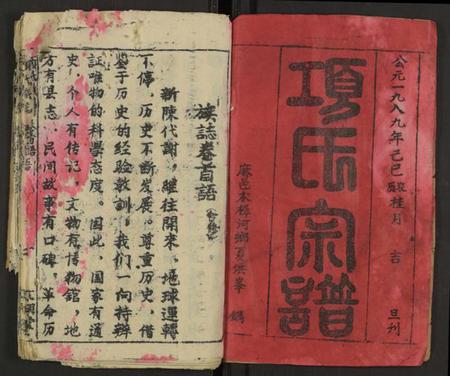 公元一九八九年己巳歲桂月 吉 旦刊
項氏宗譜
麻邑木樨河鄉夏洪峯 鐫
族誌卷首語
新陳代謝，繼往開來。地球運轉
不停，历史不断发展。尊重历史，借
鉴于历史的经验教訓，我们一向持辨
証唯物的科學态度。因此，国家有通
史，个人有传记，文物有博物館，地
方有县志，民间故事有口碑，革命历